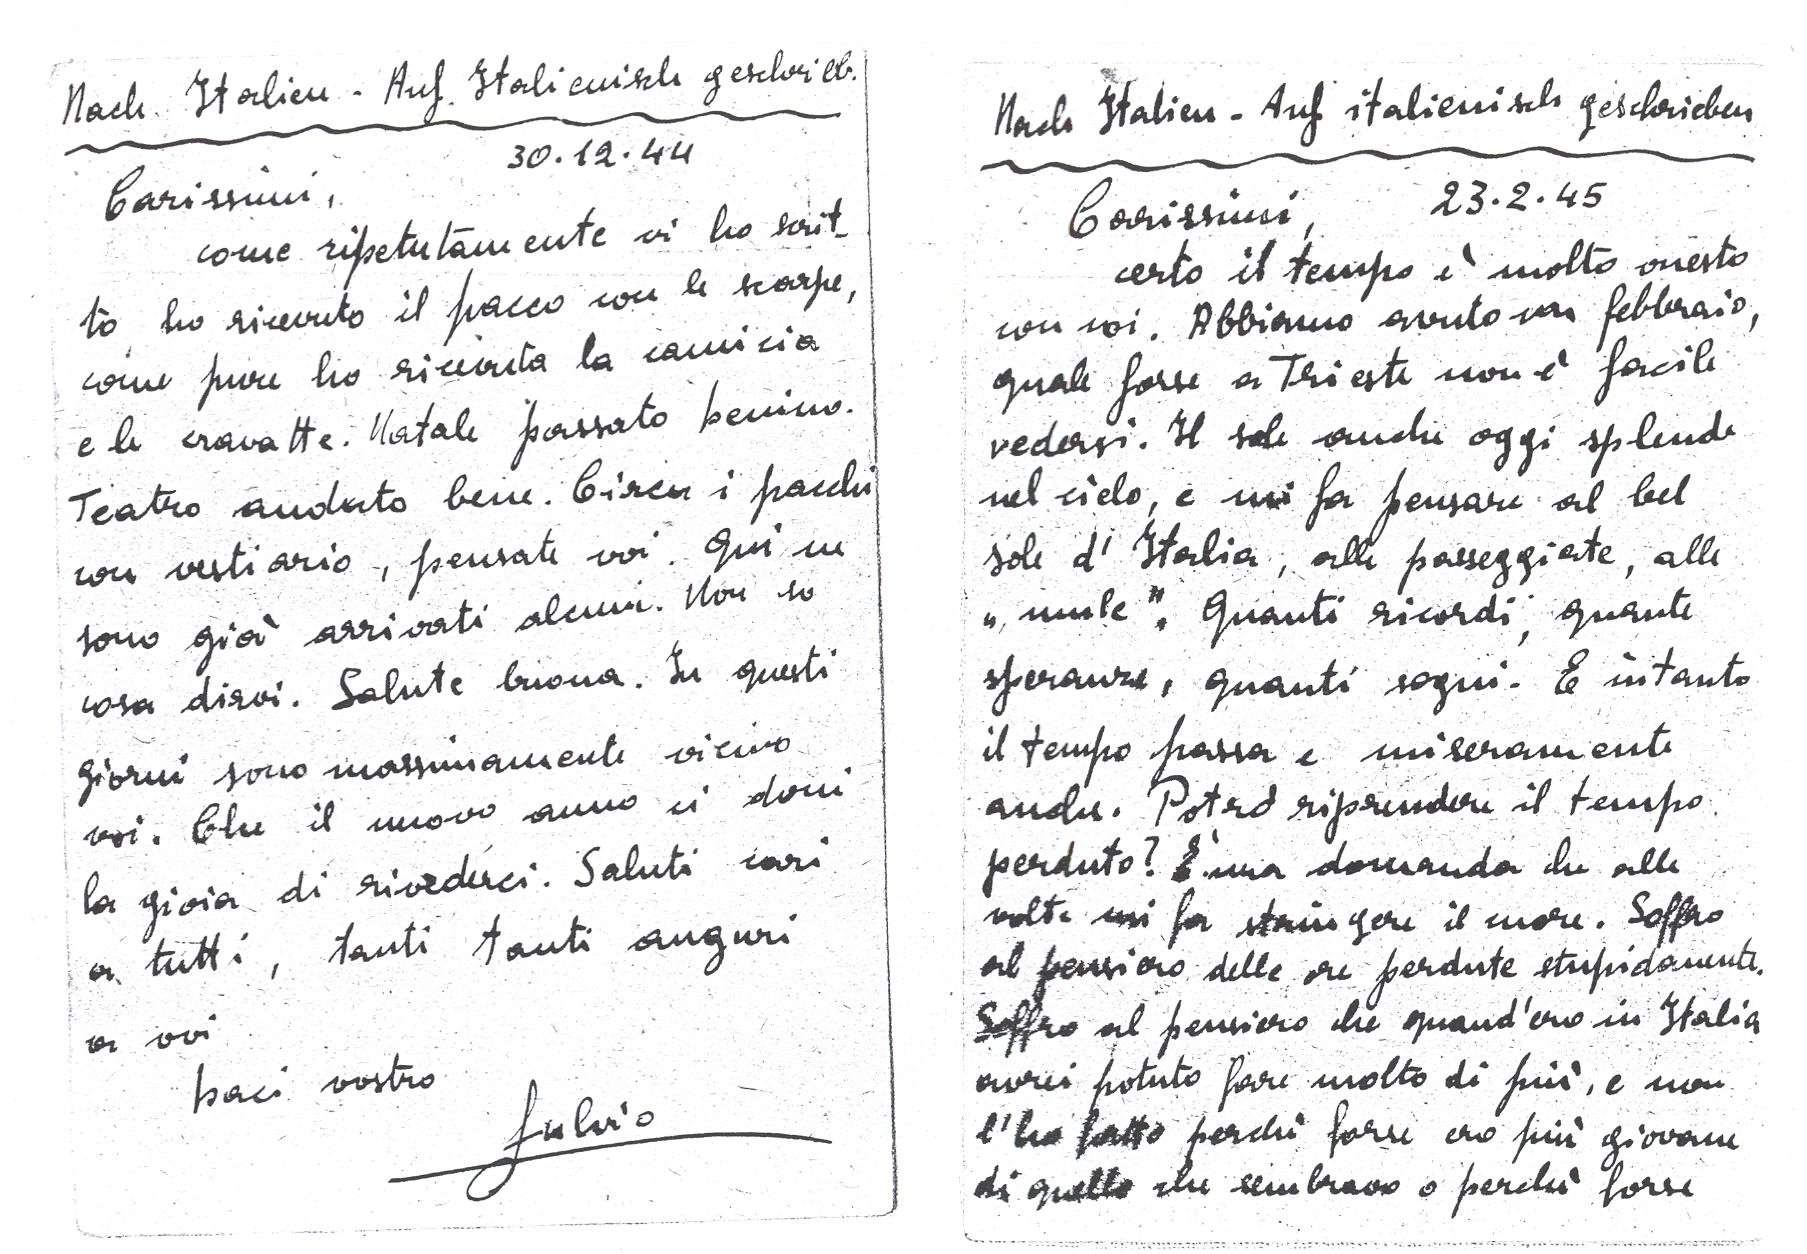 Nach Italien - Auf Italienisch geschrieb.
30.12.44
Carissimi,
come ripetutamente vi ho scrit-
to, ho ricevuto il pacco con le scarpe,
come pure ho ricevuta la camicia
e le cravatte. Natale passato benino.
Teatro andato bene. Circa i pacchi
con vestiario, pensate voi. Qui ne
sono già arrivati alcuni. Non so
cosa dirvi. Salute buona. In questi
giorni sono massimamente vicino
voi. Che il nuovo anno ci doni
la gioia di rivederci. Saluti cari
a tutti, tanti tanti auguri
a voi
baci vostro
Fulvio
Nach Italien - Auf italienisch geschrieben
Carissimi, 23.2.45
certo il tempo è molto onesto
con noi. Abbiamo avuto un febbraio,
quale forse a Trieste non è facile
vedersi. Il sole anche oggi splende
nel cielo, e mi fa pensare al bel
sole d'Italia, alle passeggiate, alle
„mule". Quanti ricordi, quante
speranze, quanti sogni. E intanto
il tempo passa e miseramente
anche. Potrò riprendere il tempo
perduto? È una domanda che alle
volte mi fa stringere il cuore. Soffro
al pensiero delle ore perdute stupidamente.
Soffro al pensiero che quand'ero in Italia
avrei potuto fare molto di più, e non
l'ho fatto perchè forse ero più giovane
di quello che sembravo o perchè forse